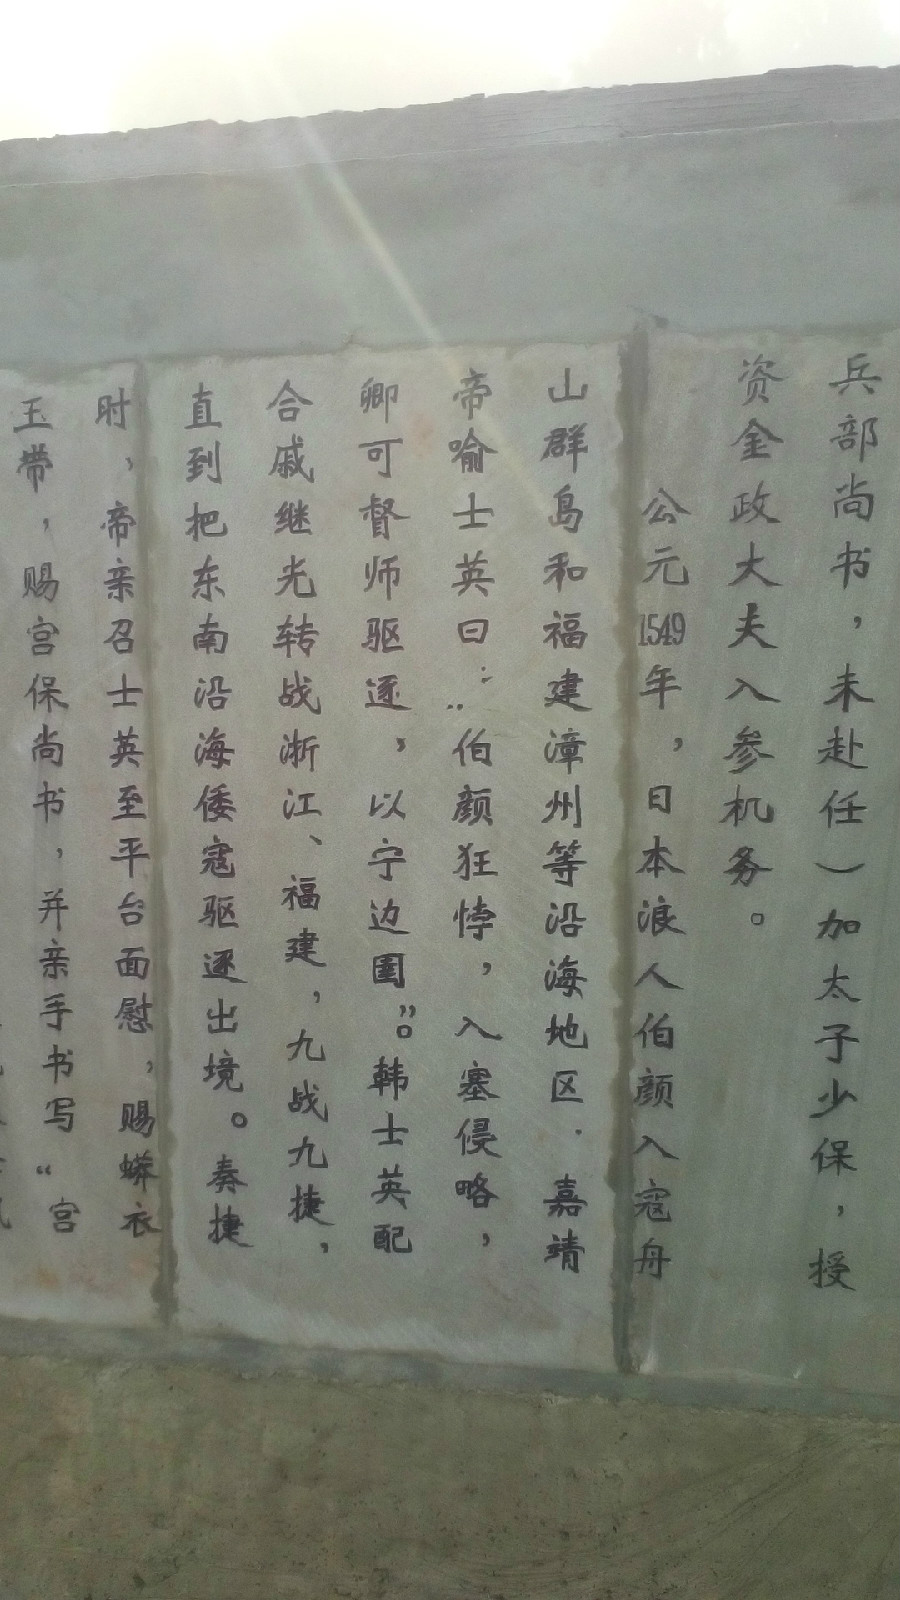 兵部尚书，未赴任）加太子少保，授
资金政大夫入参机务。
公元1549年，日本浪人伯颜入寇舟
山群岛和福建漳州等沿海地区．嘉靖
帝喻士英曰：“伯颜狂悖，入塞侵略，
卿可督师驱逐，以宁边圉”。韩士英配
合戚继光转战浙江、福建，九战九捷，
直到把东南沿海倭寇驱逐出境。奏捷
时，帝亲召士英至平台面慰，赐蟒衣
玉带，赐宫保尚书，并亲手书写“宫